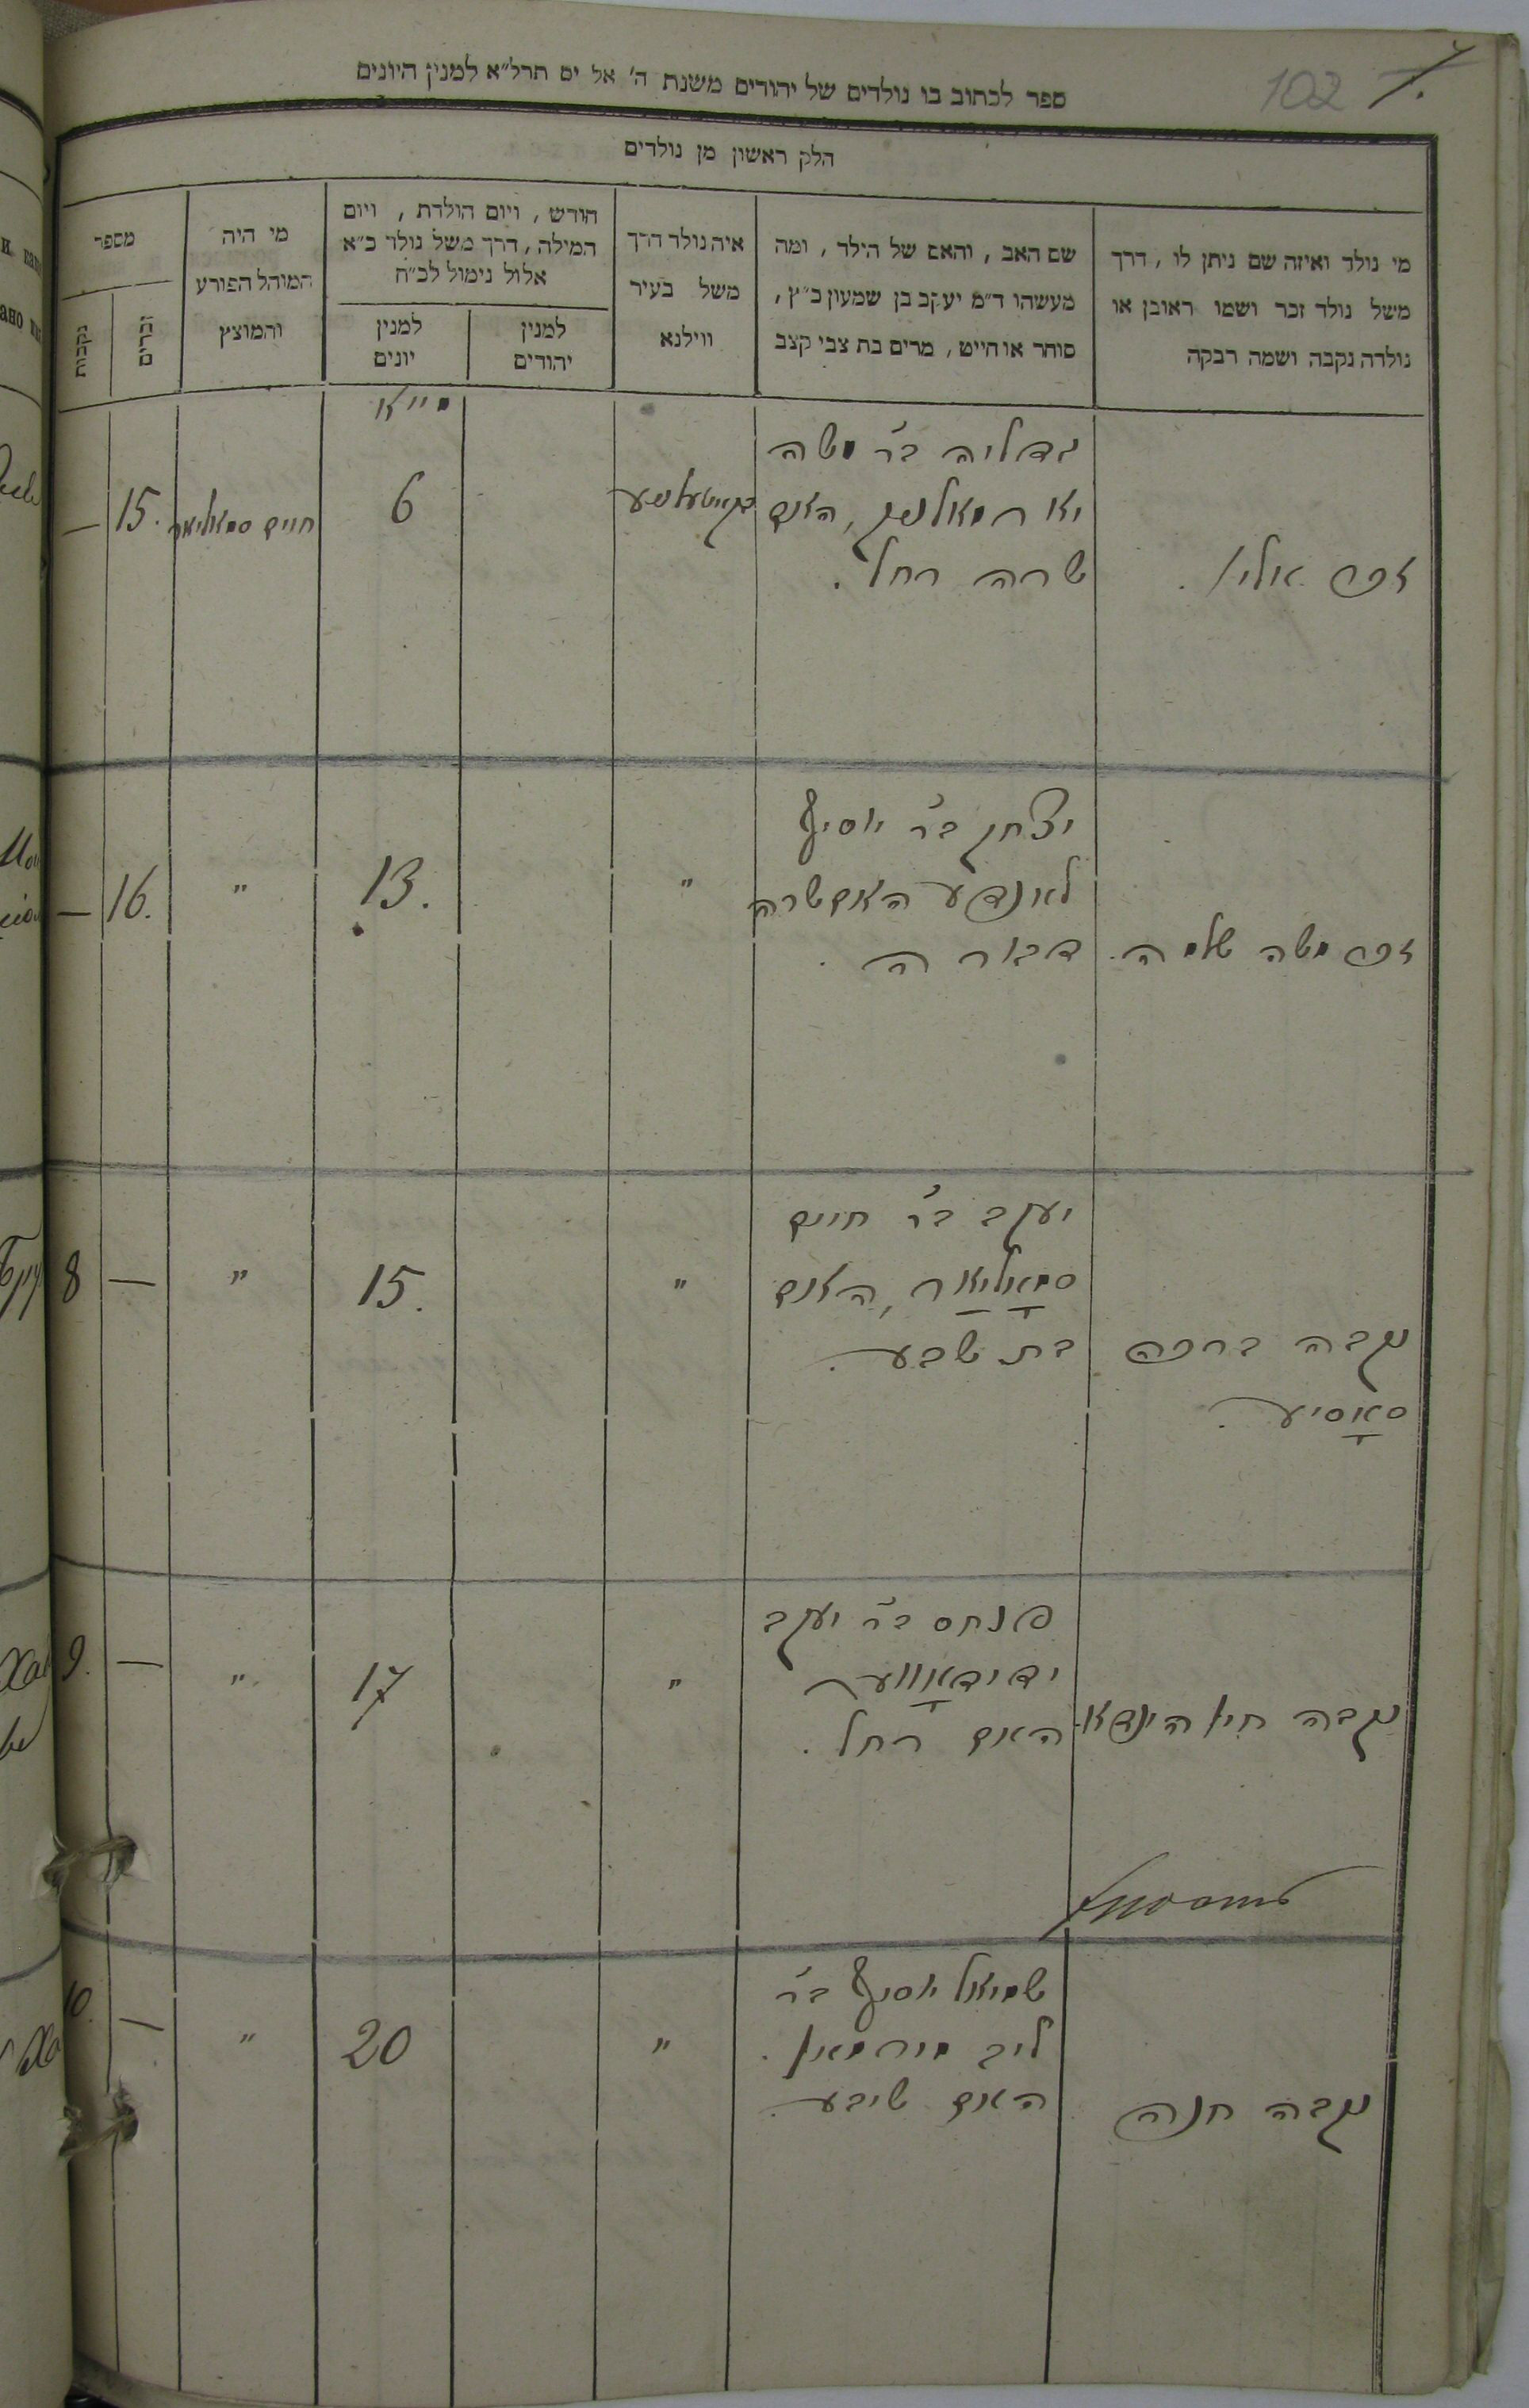 102
ספר לכתוב בו נולדים של יהודים משנת ה' אל ים תרל״א למנין היונים
חלק ראשון מן נולדים
מי נולד ואיזה שם ניתן לו, דרך
משל נולד זכר ושמו ראובן או
נולדה נקבה ושמה רבקה
שם האב, והאם של הילד, ומה
מעשהו ד״מ יעקב בן שמעון כ״ץ,
סוחר או חייט, מרים בת צבי קצב
איה נולד דרך
משל בעיר
ווילנא
חודש, ויום הולדת, ויום
המילה, דרך משל נולד כ״א
אלול נימול לכ״ח
למנין
יהודים
למנין
יונים
מי היה
המוהל הפורע
והמוצץ
מספר
זכרים
נקבות
מייא
גדליה בר משה
האם
שרה רחל.
זכר אלי'.
6
חיים
15.
—
יצחק בר יוסיף
האם שרה
דבורה.
זכר משה שלמה.
"
13.
"
16.
—
יעקב בר חיים
סמאָליאַר, האם
בת שבע.
נקבה ברכה
סאָסיע.
"
15.
"
—
8
פנחס בר יעקב
ידידאָוויץ
האם רחל.
נקבה חי' הינדא.
"
17
"
—
9.
שמואל יוסיף בר
ליב מירמאן.
האם שיבע.
נקבה חנה
"
20
"
—
10.